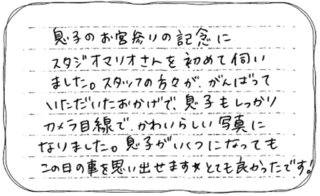 息子のお宮参りの記念に
スタジオマリオさんを初めて伺い
ました。スタッフの方々が、がんばって
いただいたおかげで、息子もしっかり
カメラ目線で、かわいらしい写真に
なりました。息子がいくつになっても
この日の事を思い出せます☆とても良かったです!